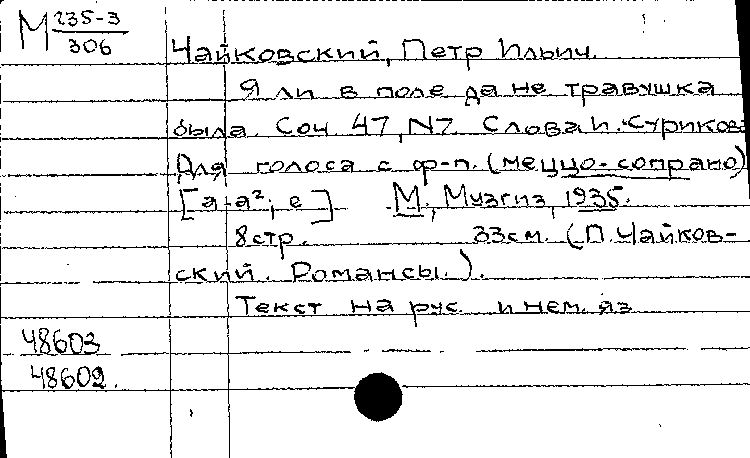 М 235-3
306
Чайковский, Петр Ильич.
Я ли в поле да не травушка
была. Соч. 47, N7. Слова И. Сурикова
Для голоса с ф-п. (меццо-сопрано)
[a-a², e] М., Музгиз, 1935.
8стр. 33см. (П. Чайков-
ский. Романсы.).
Текст на рус. и нем. яз
48603
48602.